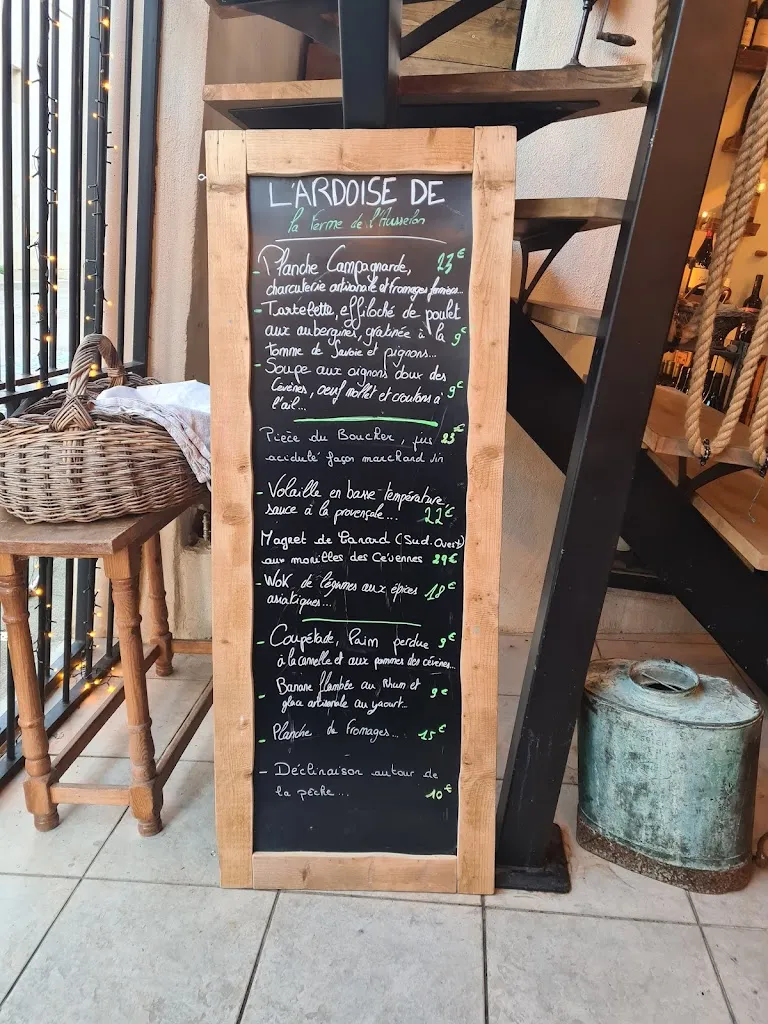 L'ARDOISE DE
la Ferme de l'Husselon
- Planche Campagnarde, 23€
charcuterie artisanale et fromages fermiers...
- Tartelette, effiloché de poulet
aux aubergines, gratinée à la 9€
tomme de Savoie et pignons...
- Soupe aux oignons doux des
Cévènes, oeuf mollet et croutons à 9€
l'ail...
Pièce du Boucher, jus 23€
acidulé façon marchand vin
- Volaille en basse-température,
sauce à la provençale... 22€
Magret de Canard (Sud.Ouest)
aux morilles des Cévennes 29€
- Wok de légumes aux épices 18€
asiatiques...
- Coupétade, Pain perdue 9€
à la cannelle et aux pommes des cévènes...
- Banane flambée au Rhum et 9€
glace artisanale au yaourt..
- Planche de fromages... 15€
- Déclinaison autour de
la pêche... 10€